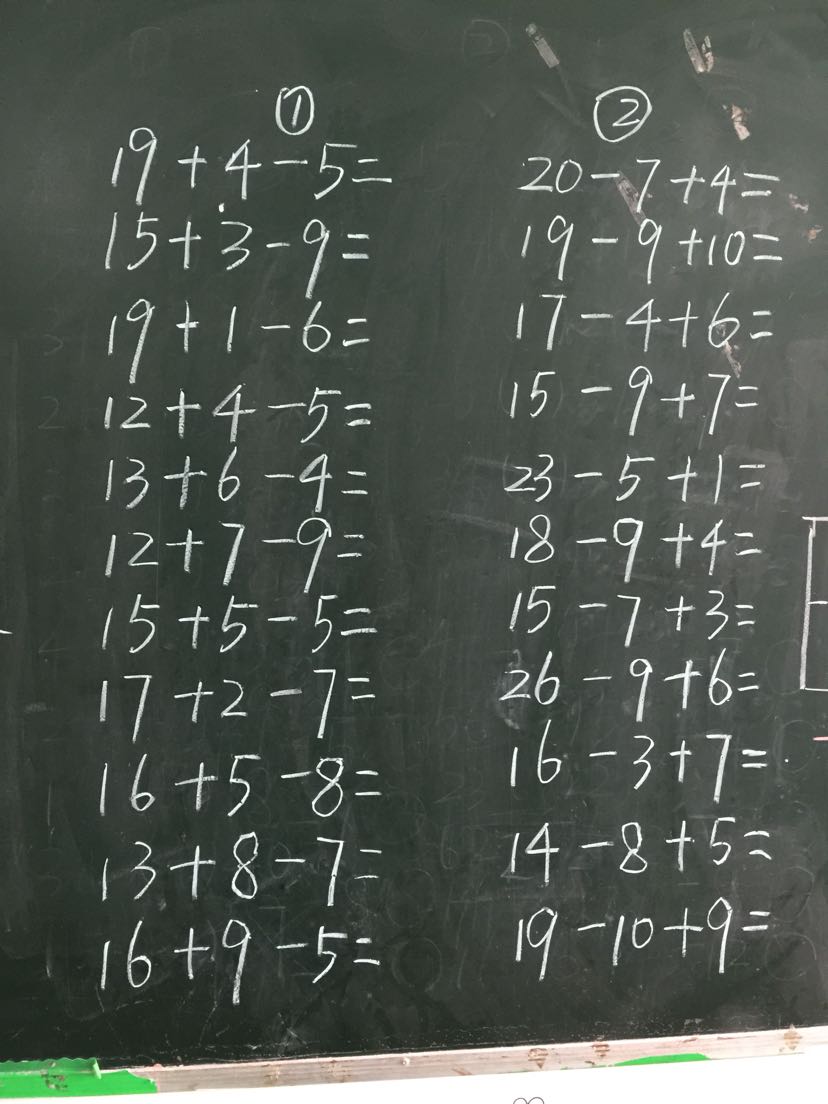 ①
19+4-5=
15+3-9=
19+1-6=
12+4-5=
13+6-4=
12+7-9=
15+5-5=
17+2-7=
16+5-8=
13+8-7=
16+9-5=
②
20-7+4=
19-9+10=
17-4+6=
15-9+7=
23-5+1=
18-9+4=
15-7+3=
26-9+6=
16-3+7=
14-8+5=
19-10+9=